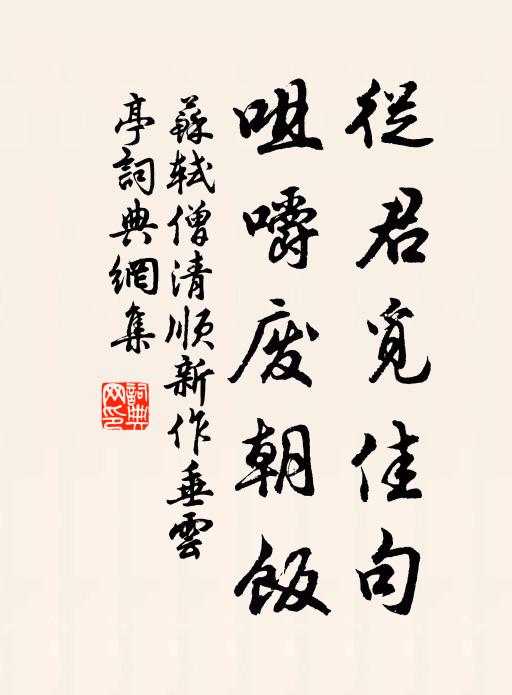 從君覓佳句
咀嚼廢朝飯
蘇軾僧清順新作垂雲
亭詞典網集
詞典網印